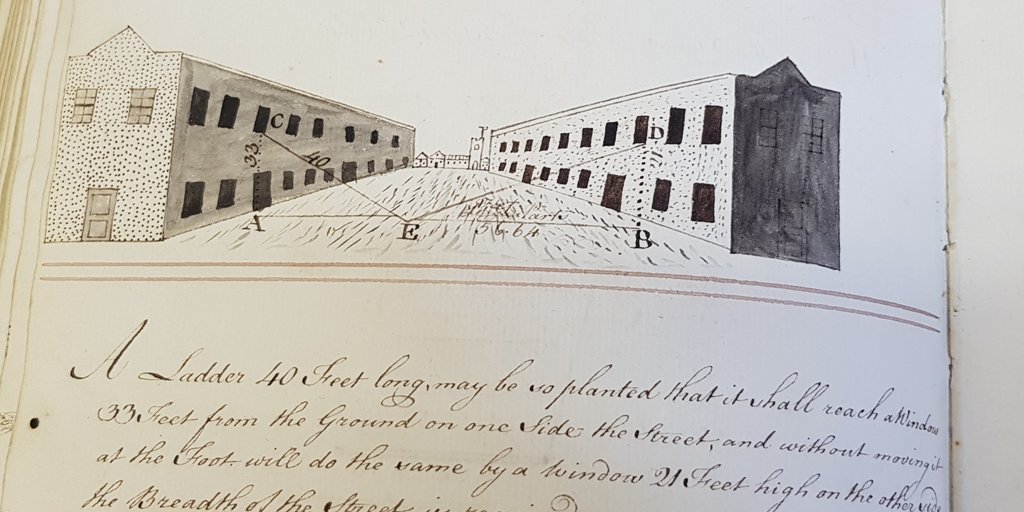 C
D
33
40
21
A
E
B
56.64
A Ladder 40 Feet long, may be so planted that it shall reach a Window
33 Feet from the Ground on one Side the Street, and without moving it
at the Foot will do the same by a Window 21 Feet high on the other side
the Breadth of the Street is